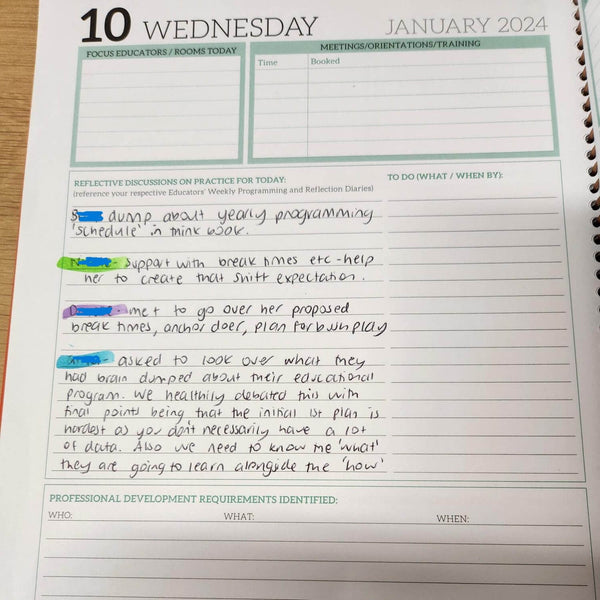 10 WEDNESDAY JANUARY 2024
FOCUS EDUCATORS / ROOMS TODAY
MEETINGS/ORIENTATIONS/TRAINING
Time Booked
REFLECTIVE DISCUSSIONS ON PRACTICE FOR TODAY:
(reference your respective Educators' Weekly Programming and Reflection Diaries)
TO DO (WHAT / WHEN BY):
dump about yearly programming
'schedule' in think book.
- Support with break times etc - help
her to create that shift expectation.
- met to go over her proposed
break times, anchor doer, plan for bush play
- asked to look over what they
had brain dumped about their educational
program. We healthily debated this with
final points being that the initial 1st plan is
hardest as you don't necessarily have a lot
of data. Also we need to know the 'what'
they are going to learn alongside the 'how'
PROFESSIONAL DEVELOPMENT REQUIREMENTS IDENTIFIED:
WHO: WHAT: WHEN: